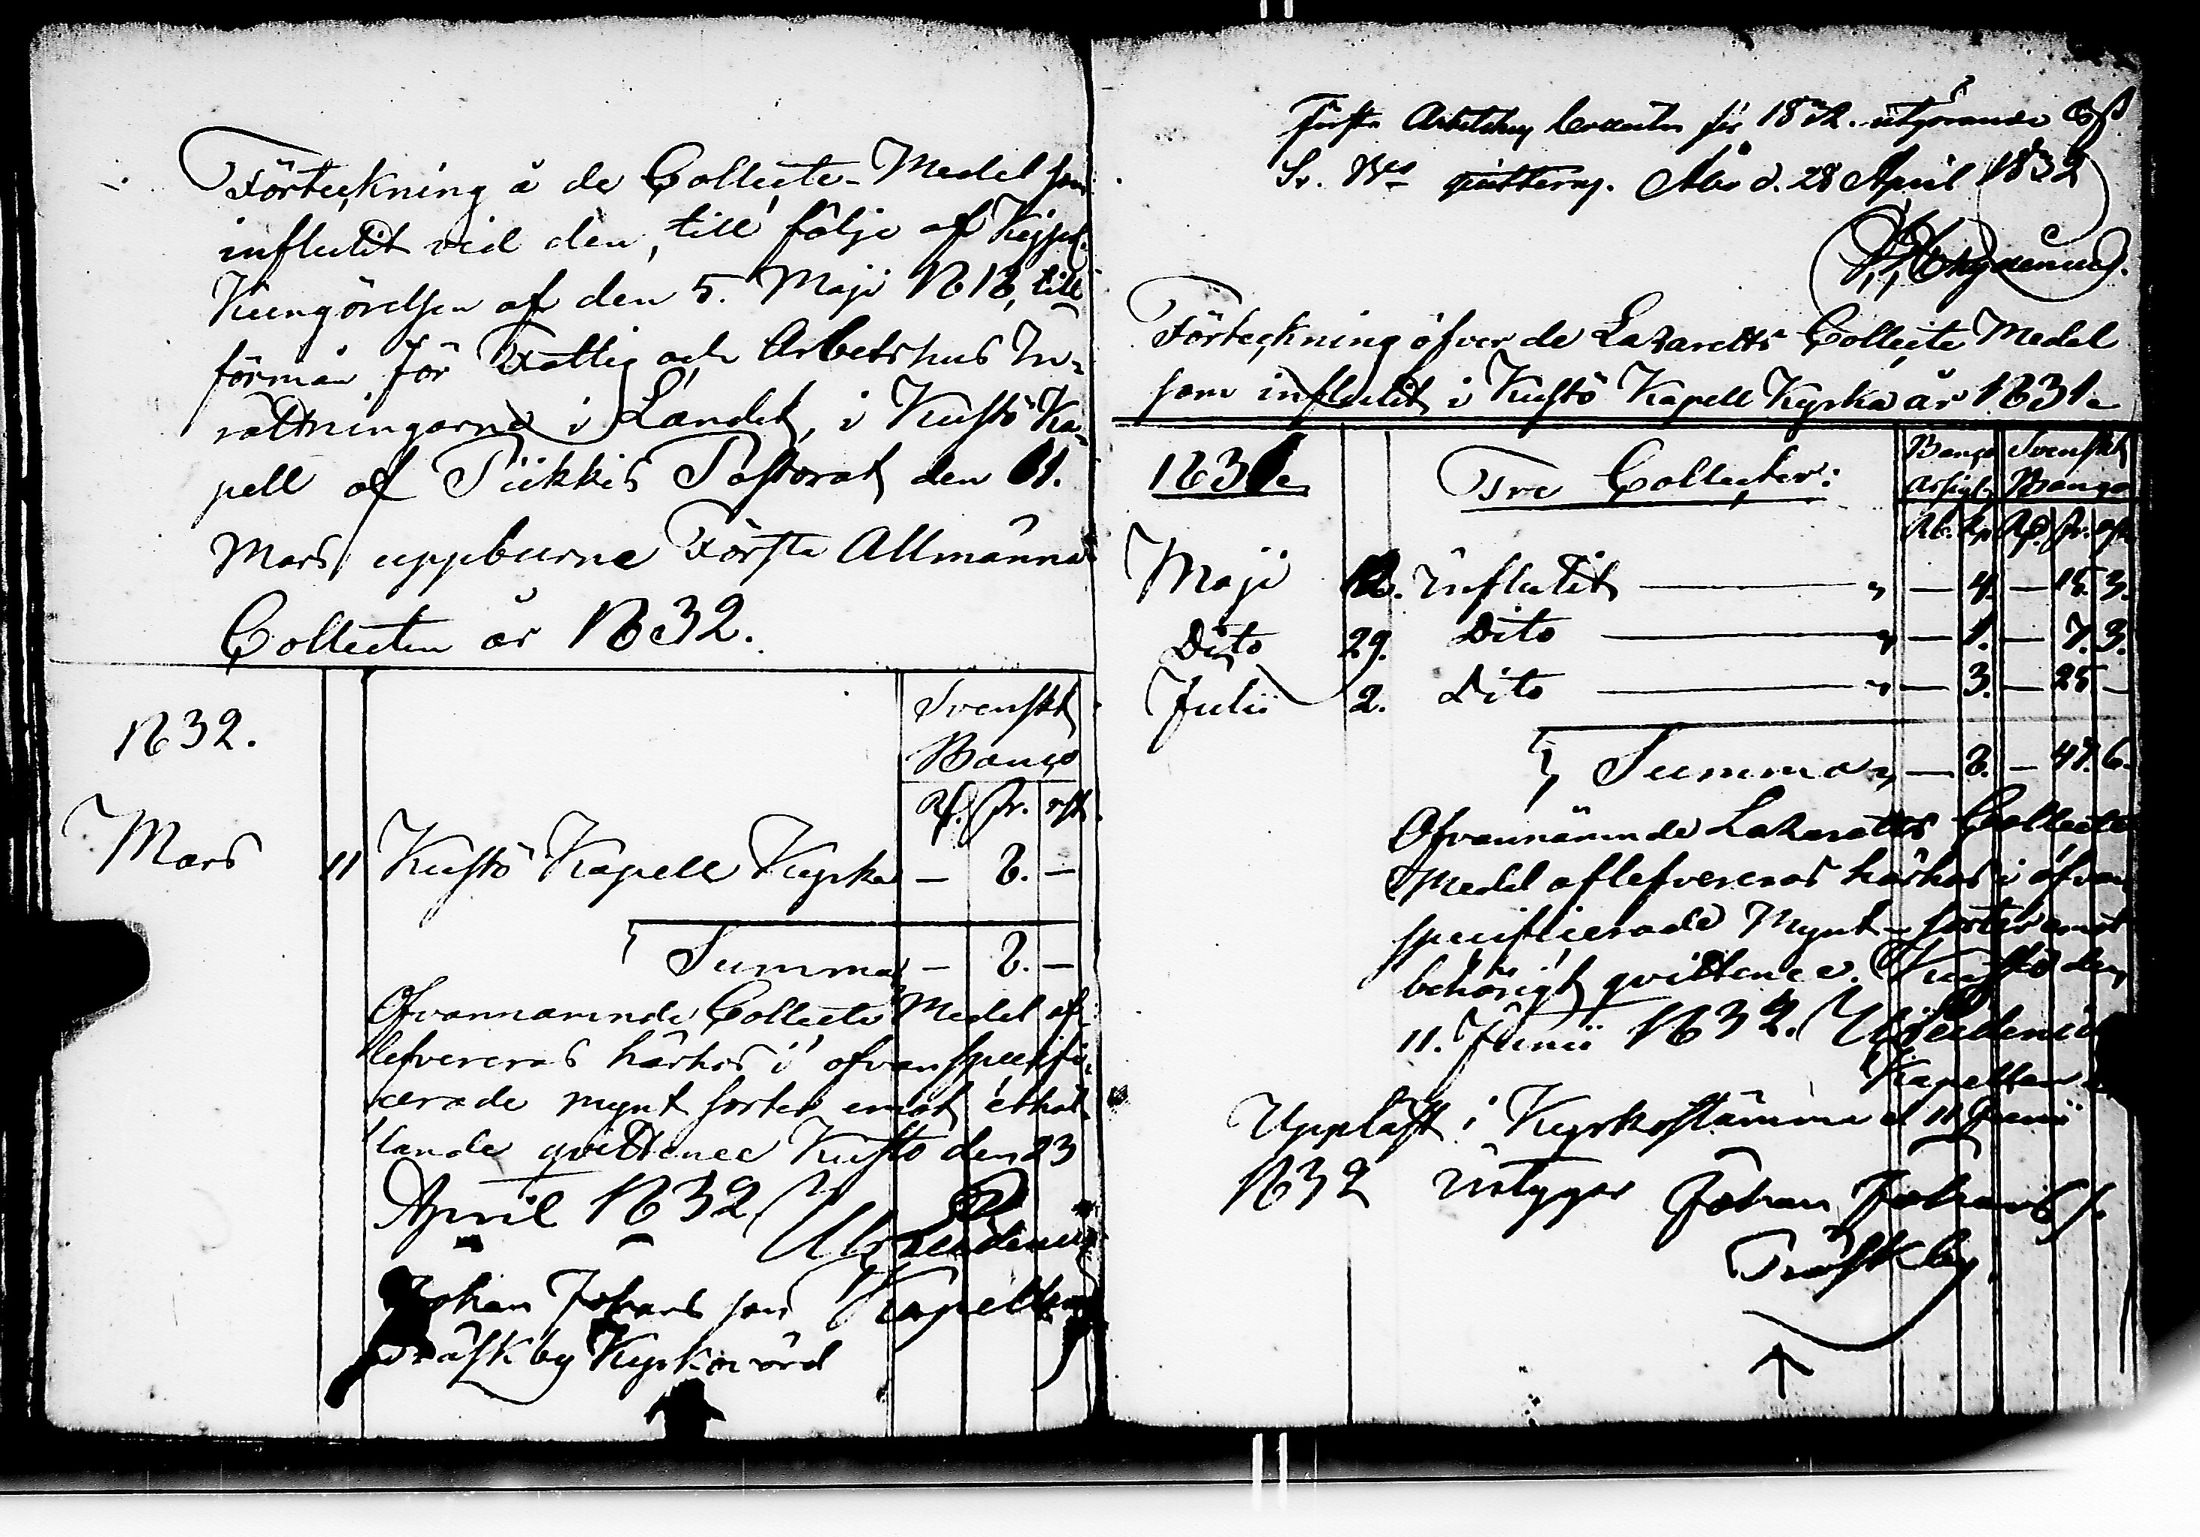 Förteckning å de Collecte-Medel som
influtit vid den, till följe af Kejserl.
Kungörelsen af den 5. Maji 1818, till
förmån för Fattig och Arbetshus In-
rättningarna i Landet, i Kustö Ka-
pell af Piikkis Pastorat den 11.
Mars uppburne Första Allmänna
Collecten år 1832.
1832.
Svenskt
Banco
Rd. sk. rst.
Mars 11 Kustö Kapell Kyrka — 8. —
Summa — 8. —
Ofvannämnde Collecte Medel af-
lefvereras härhos i ofvanspecifi-
cerade mynt sorter emot erhål-
lande qvittence Kustö den 23
April 1832
Johan Johans son Kapellan
Träskby Kyrkovärd
Första Arbetshus Collecten för 1832. utgörande
qvitteras. Åbo d. 28 April 1832
Förteckning öfver de Lazaretts Collecte Medel
som influtit i Kustö Kapell Kyrka år 1831.
1831. Tre Collecter:
Banco Assign. Svenskt Banco
Rb. Kp. Rd. sk. rst.
Maji 12. Influtit — 4. — 15. 3.
Dito 29. Dito — 1. — 7. 3.
Julii 2. Dito — 3. — 25 —
Summa — 8. — 47. 6.
Ofvannämnde Lazaretts Collecte
Medel aflefvereras härhos i ofvan
specificerade Mynt-sorter emot
behörigt qvittence. Kustö den
11. Junii 1832.
Kapellan
Uppläst i Kyrkostämma d 11 Junii
1832 intygar Johan Johans s.
Träskby